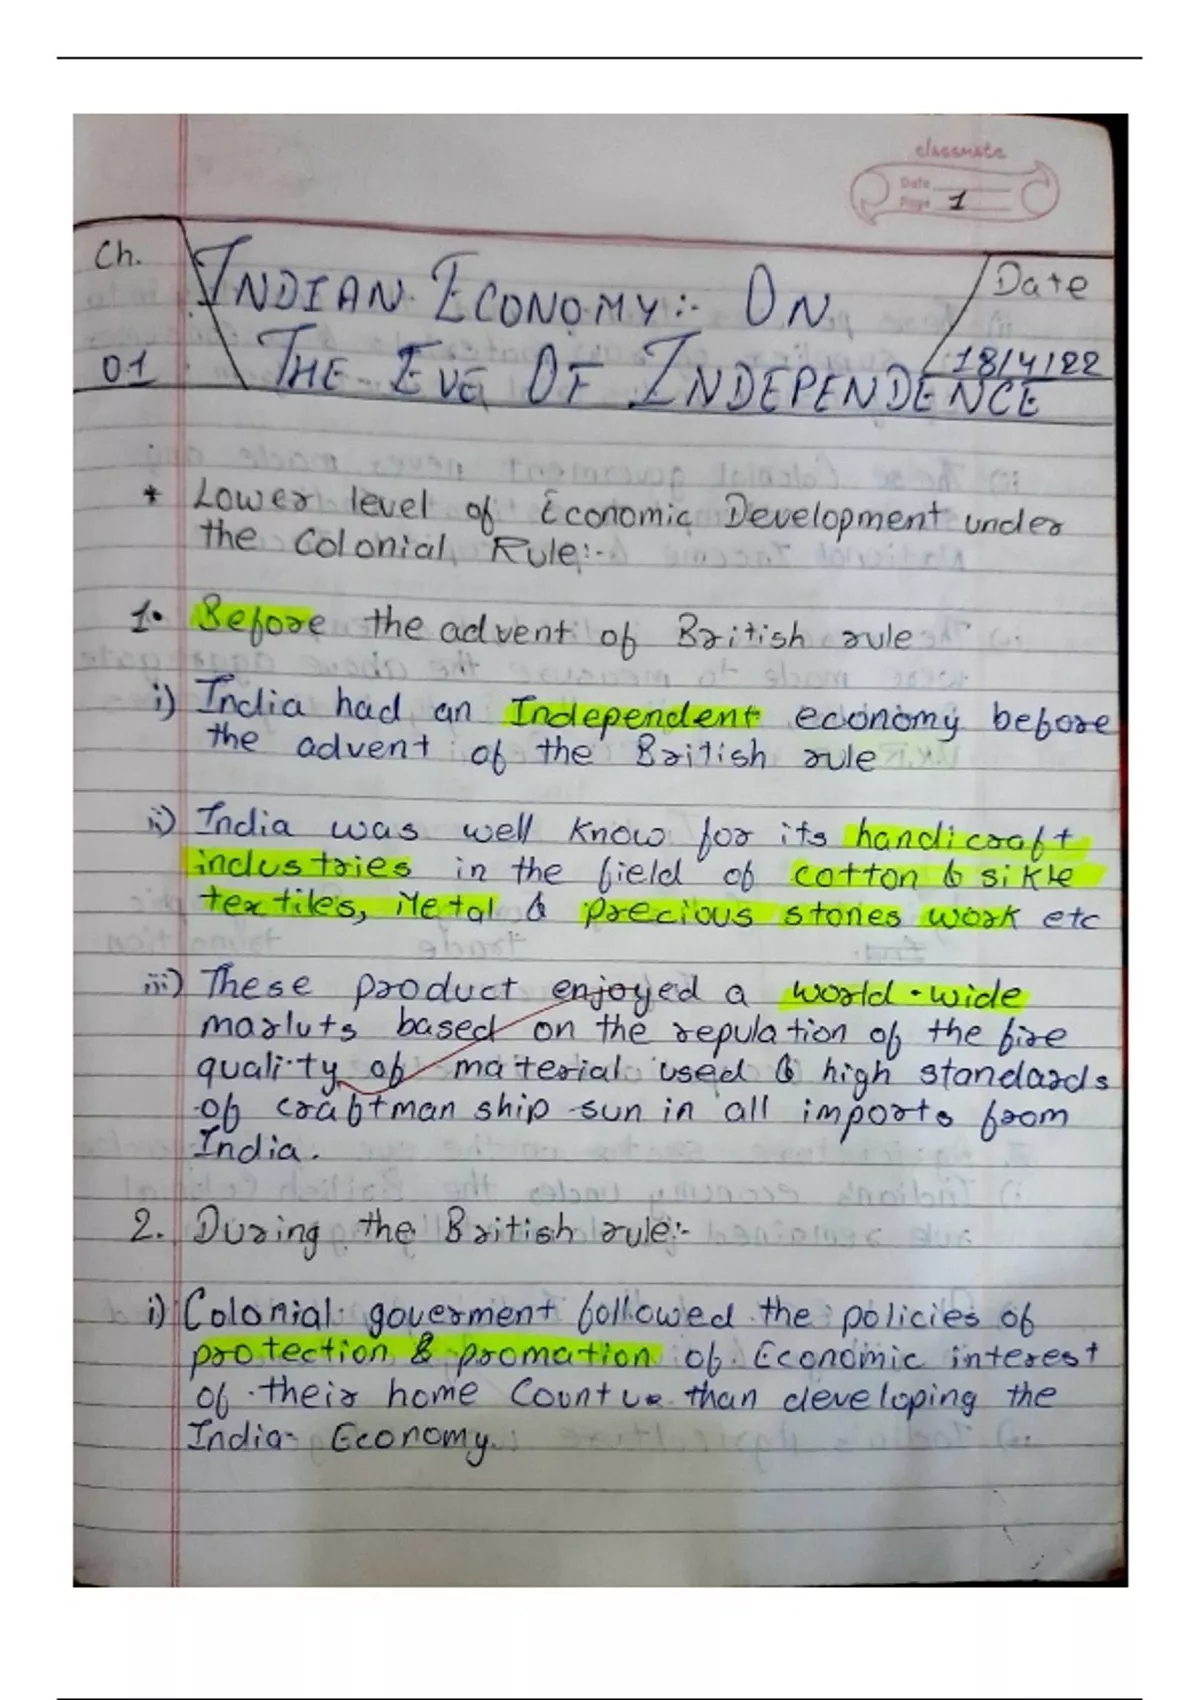 classmate
Date
Page 1
Ch.
01
INDIAN ECONOMY:- ON
THE EVE OF INDEPENDENCE
Date
18/4/22
* Lower level of Economic Development under
the Colonial Rule:-
1. Before the advent of British rule
i) India had an Independent economy before
the advent of the British rule
ii) India was well know for its handicraft
industries in the field of cotton & sikle
textiles, Metal & precious stones work etc
iii) These product enjoyed a world-wide
marluts based on the repulation of the fire
quality of material used & high standards
of craftman ship sun in all imports from
India.
2. During the British rule:-
i) Colonial goverment followed the policies of
protection & promation of Economic interest
of their home than developing the
India Economy.